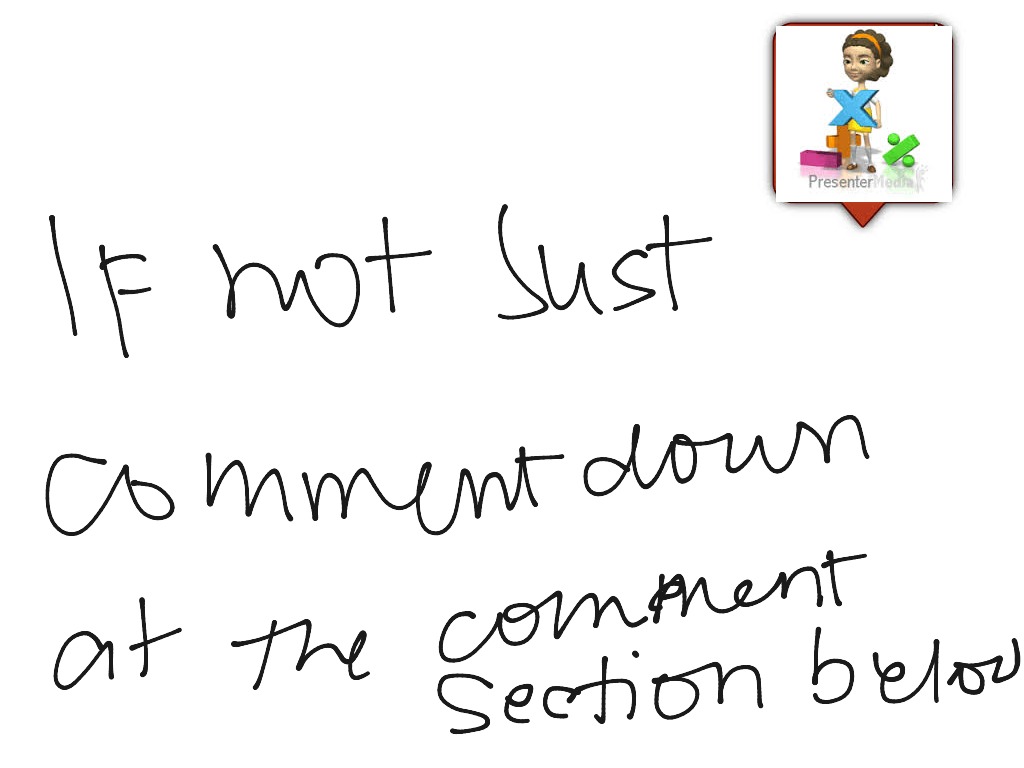 PresenterMedia
If not Just
comment down
at the comment
section below